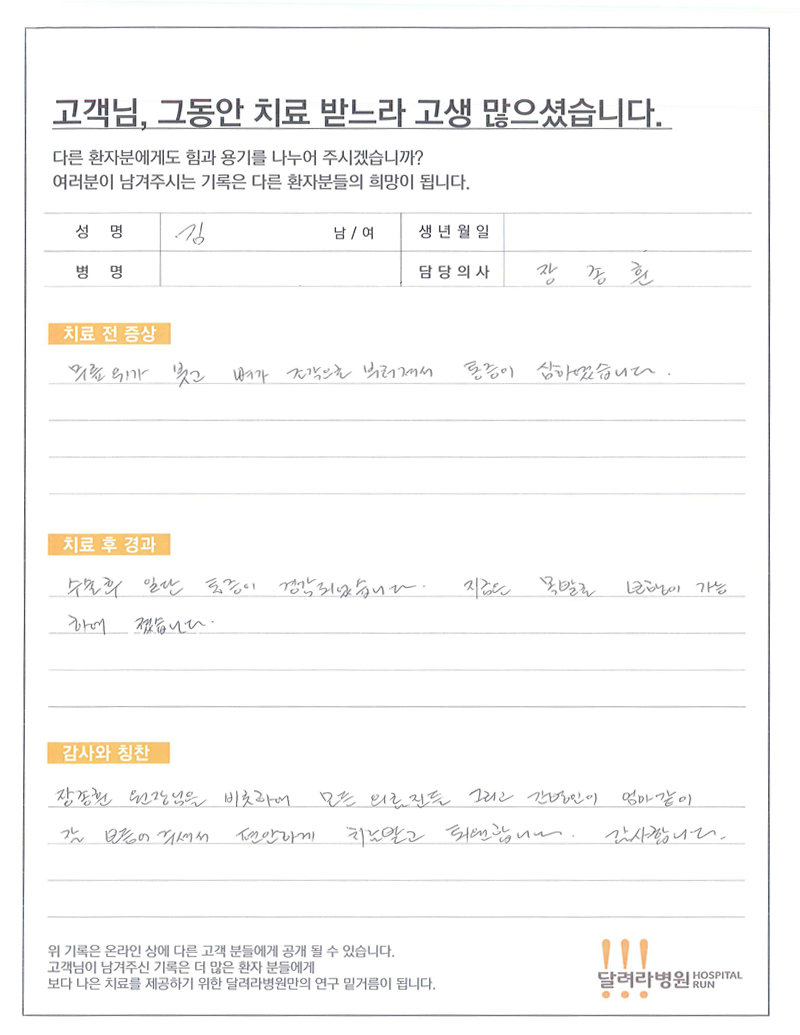 고객님, 그동안 치료 받느라 고생 많으셨습니다.
다른 환자분에게도 힘과 용기를 나누어 주시겠습니까?
여러분이 남겨주시는 기록은 다른 환자분들의 희망이 됩니다.
성 명 김 남 / 여 생년월일
병 명 담당의사 장 종 훤
치료 전 증상
위가 붓고 뼈가 조각으로 부러져서 통증이 심하였습니다.
치료 후 경과
수술후 일단 통증이 경감되었습니다. 지금은 목발로 보행이 가능
하여 졌습니다.
감사와 칭찬
원장님을 비롯하여 모든 의료진들 그리고 간병인이 엄마같이
잘 보듬어 주셔서 편안하게 치료받고 퇴원합니다. 감사합니다.
위 기록은 온라인 상에 다른 고객 분들에게 공개 될 수 있습니다.
고객님이 남겨주신 기록은 더 많은 환자 분들에게
보다 나은 치료를 제공하기 위한 달려라병원만의 연구 밑거름이 됩니다.
!!!
달려라병원 HOSPITAL RUN